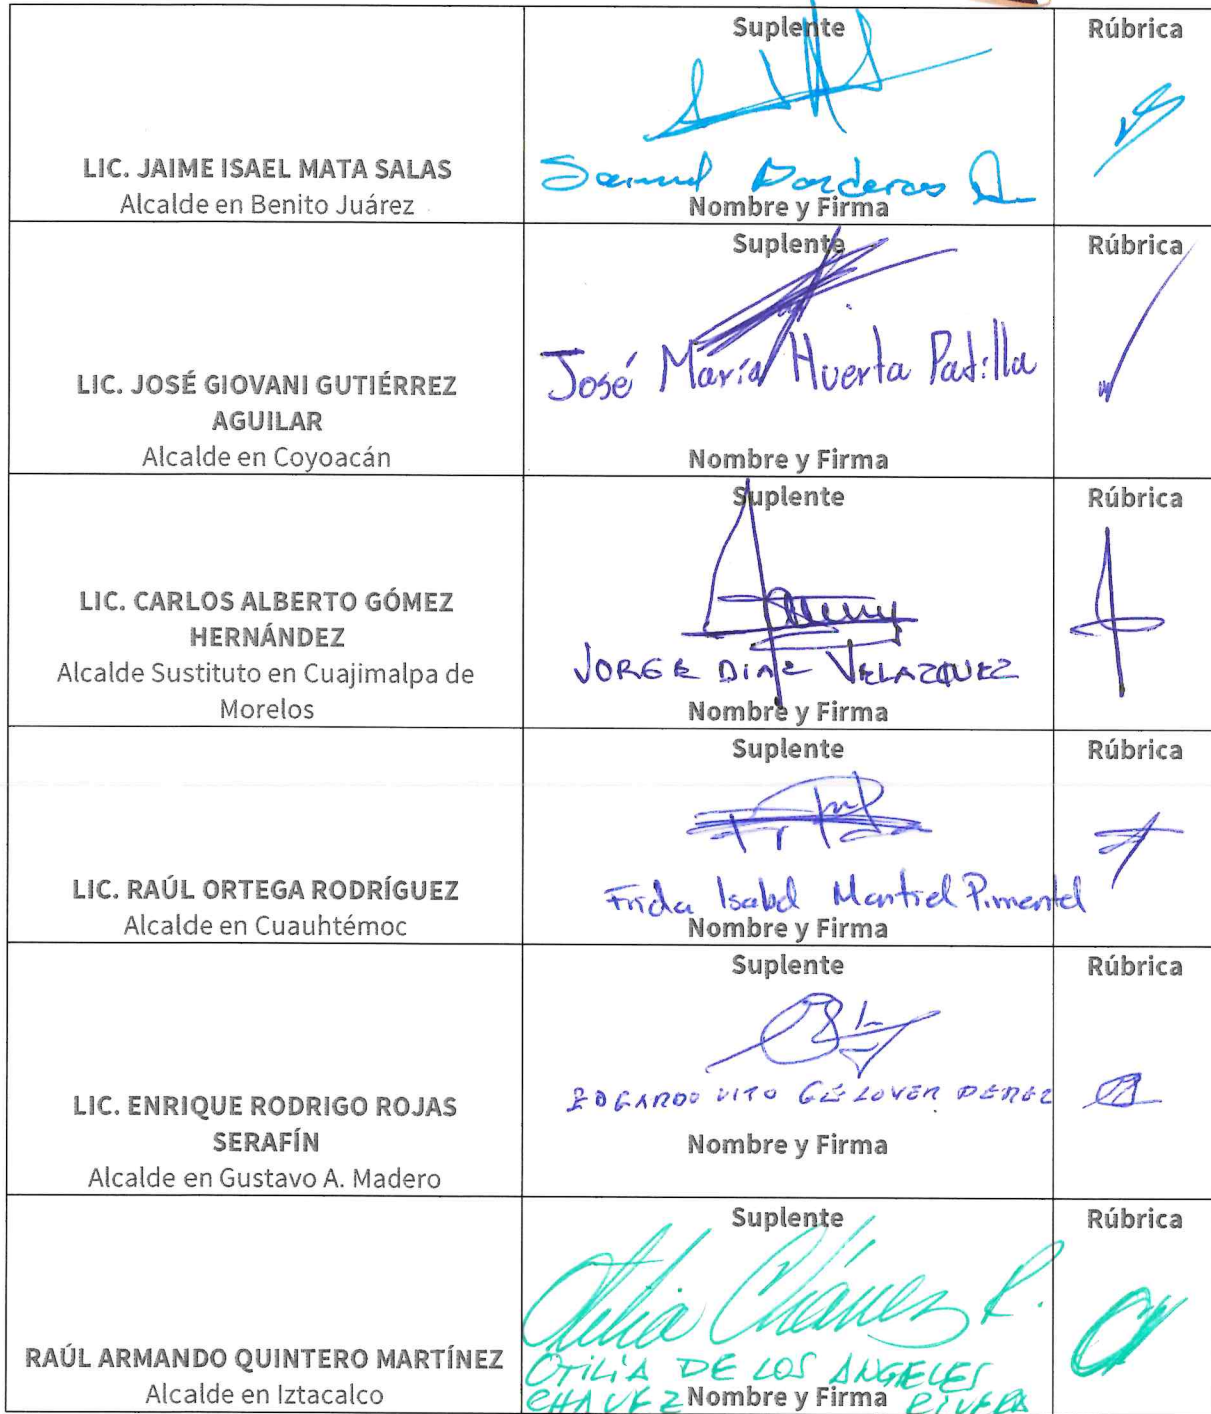 Suplente
Rúbrica
LIC. JAIME ISAEL MATA SALAS
Alcalde en Benito Juárez
Samuel
Nombre y Firma
Suplente
Rúbrica
LIC. JOSÉ GIOVANI GUTIÉRREZ
AGUILAR
Alcalde en Coyoacán
José María Huerta Padilla
Nombre y Firma
Suplente
Rúbrica
LIC. CARLOS ALBERTO GÓMEZ
HERNÁNDEZ
Alcalde Sustituto en Cuajimalpa de
Morelos
JORGE DIAZ VELAZQUEZ
Nombre y Firma
Suplente
Rúbrica
LIC. RAÚL ORTEGA RODRÍGUEZ
Alcalde en Cuauhtémoc
Frida Isabel Montiel Pimentel
Nombre y Firma
Suplente
Rúbrica
LIC. ENRIQUE RODRIGO ROJAS
SERAFÍN
Alcalde en Gustavo A. Madero
EDGARDO VITO PEREZ
Nombre y Firma
Suplente
Rúbrica
RAÚL ARMANDO QUINTERO MARTÍNEZ
Alcalde en Iztacalco
Otilia Chávez R.
OTILIA DE LOS ANGELES
CHAVEZ RIVERA
Nombre y Firma